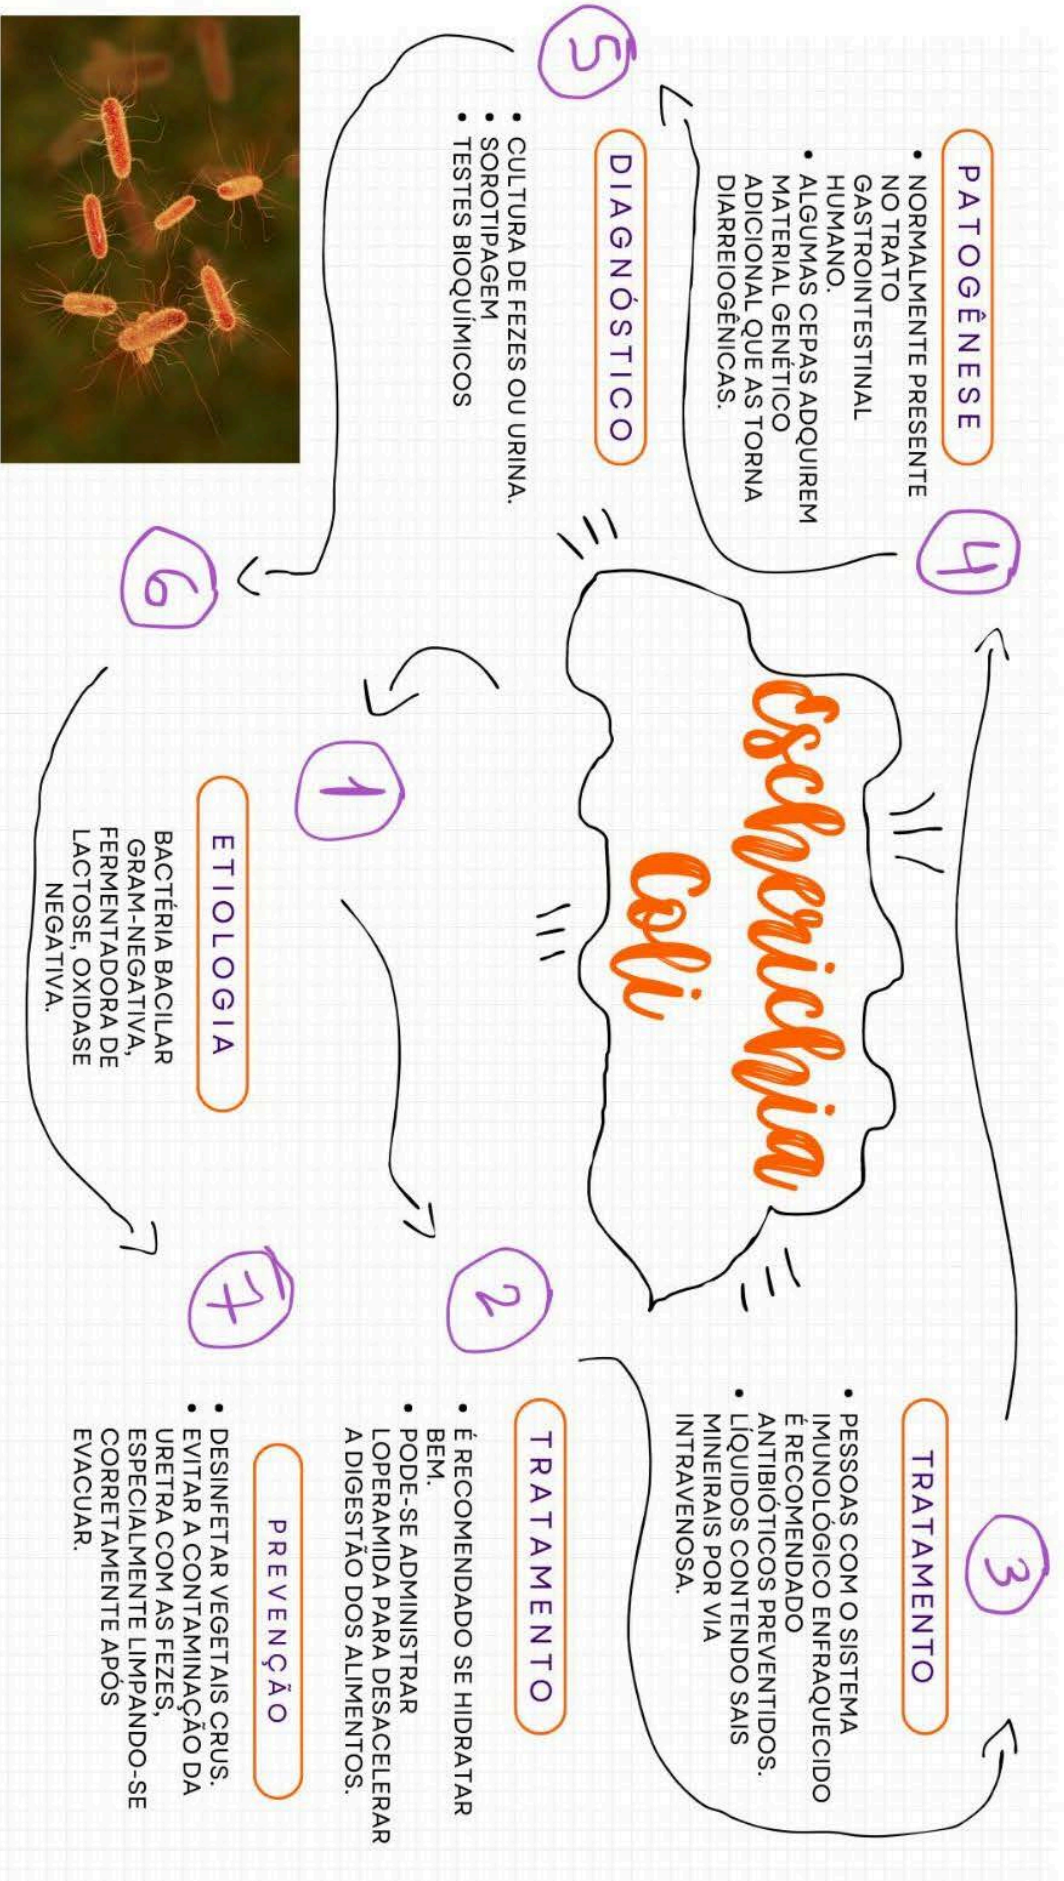 Escherichia
Coli
1
ETIOLOGIA
BACTÉRIA BACILAR
GRAM-NEGATIVA,
FERMENTADORA DE
LACTOSE, OXIDASE
NEGATIVA.
2
TRATAMENTO
• É RECOMENDADO SE HIDRATAR
BEM.
• PODE-SE ADMINISTRAR
LOPERAMIDA PARA DESACELERAR
A DIGESTÃO DOS ALIMENTOS.
3
TRATAMENTO
• PESSOAS COM O SISTEMA
IMUNOLÓGICO ENFRAQUECIDO
É RECOMENDADO
ANTIBIÓTICOS PREVENTIDOS.
• LÍQUIDOS CONTENDO SAIS
MINEIRAIS POR VIA
INTRAVENOSA.
4
PATOGÊNESE
• NORMALMENTE PRESENTE
NO TRATO
GASTROINTESTINAL
HUMANO.
• ALGUMAS CEPAS ADQUIREM
MATERIAL GENÉTICO
ADICIONAL QUE AS TORNA
DIARREIOGÊNICAS.
5
DIAGNÓSTICO
• CULTURA DE FEZES OU URINA.
• SOROTIPAGEM
• TESTES BIOQUÍMICOS
6
7
PREVENÇÃO
• DESINFETAR VEGETAIS CRUS.
• EVITAR A CONTAMINAÇÃO DA
URETRA COM AS FEZES,
ESPECIALMENTE LIMPANDO-SE
CORRETAMENTE APÓS
EVACUAR.